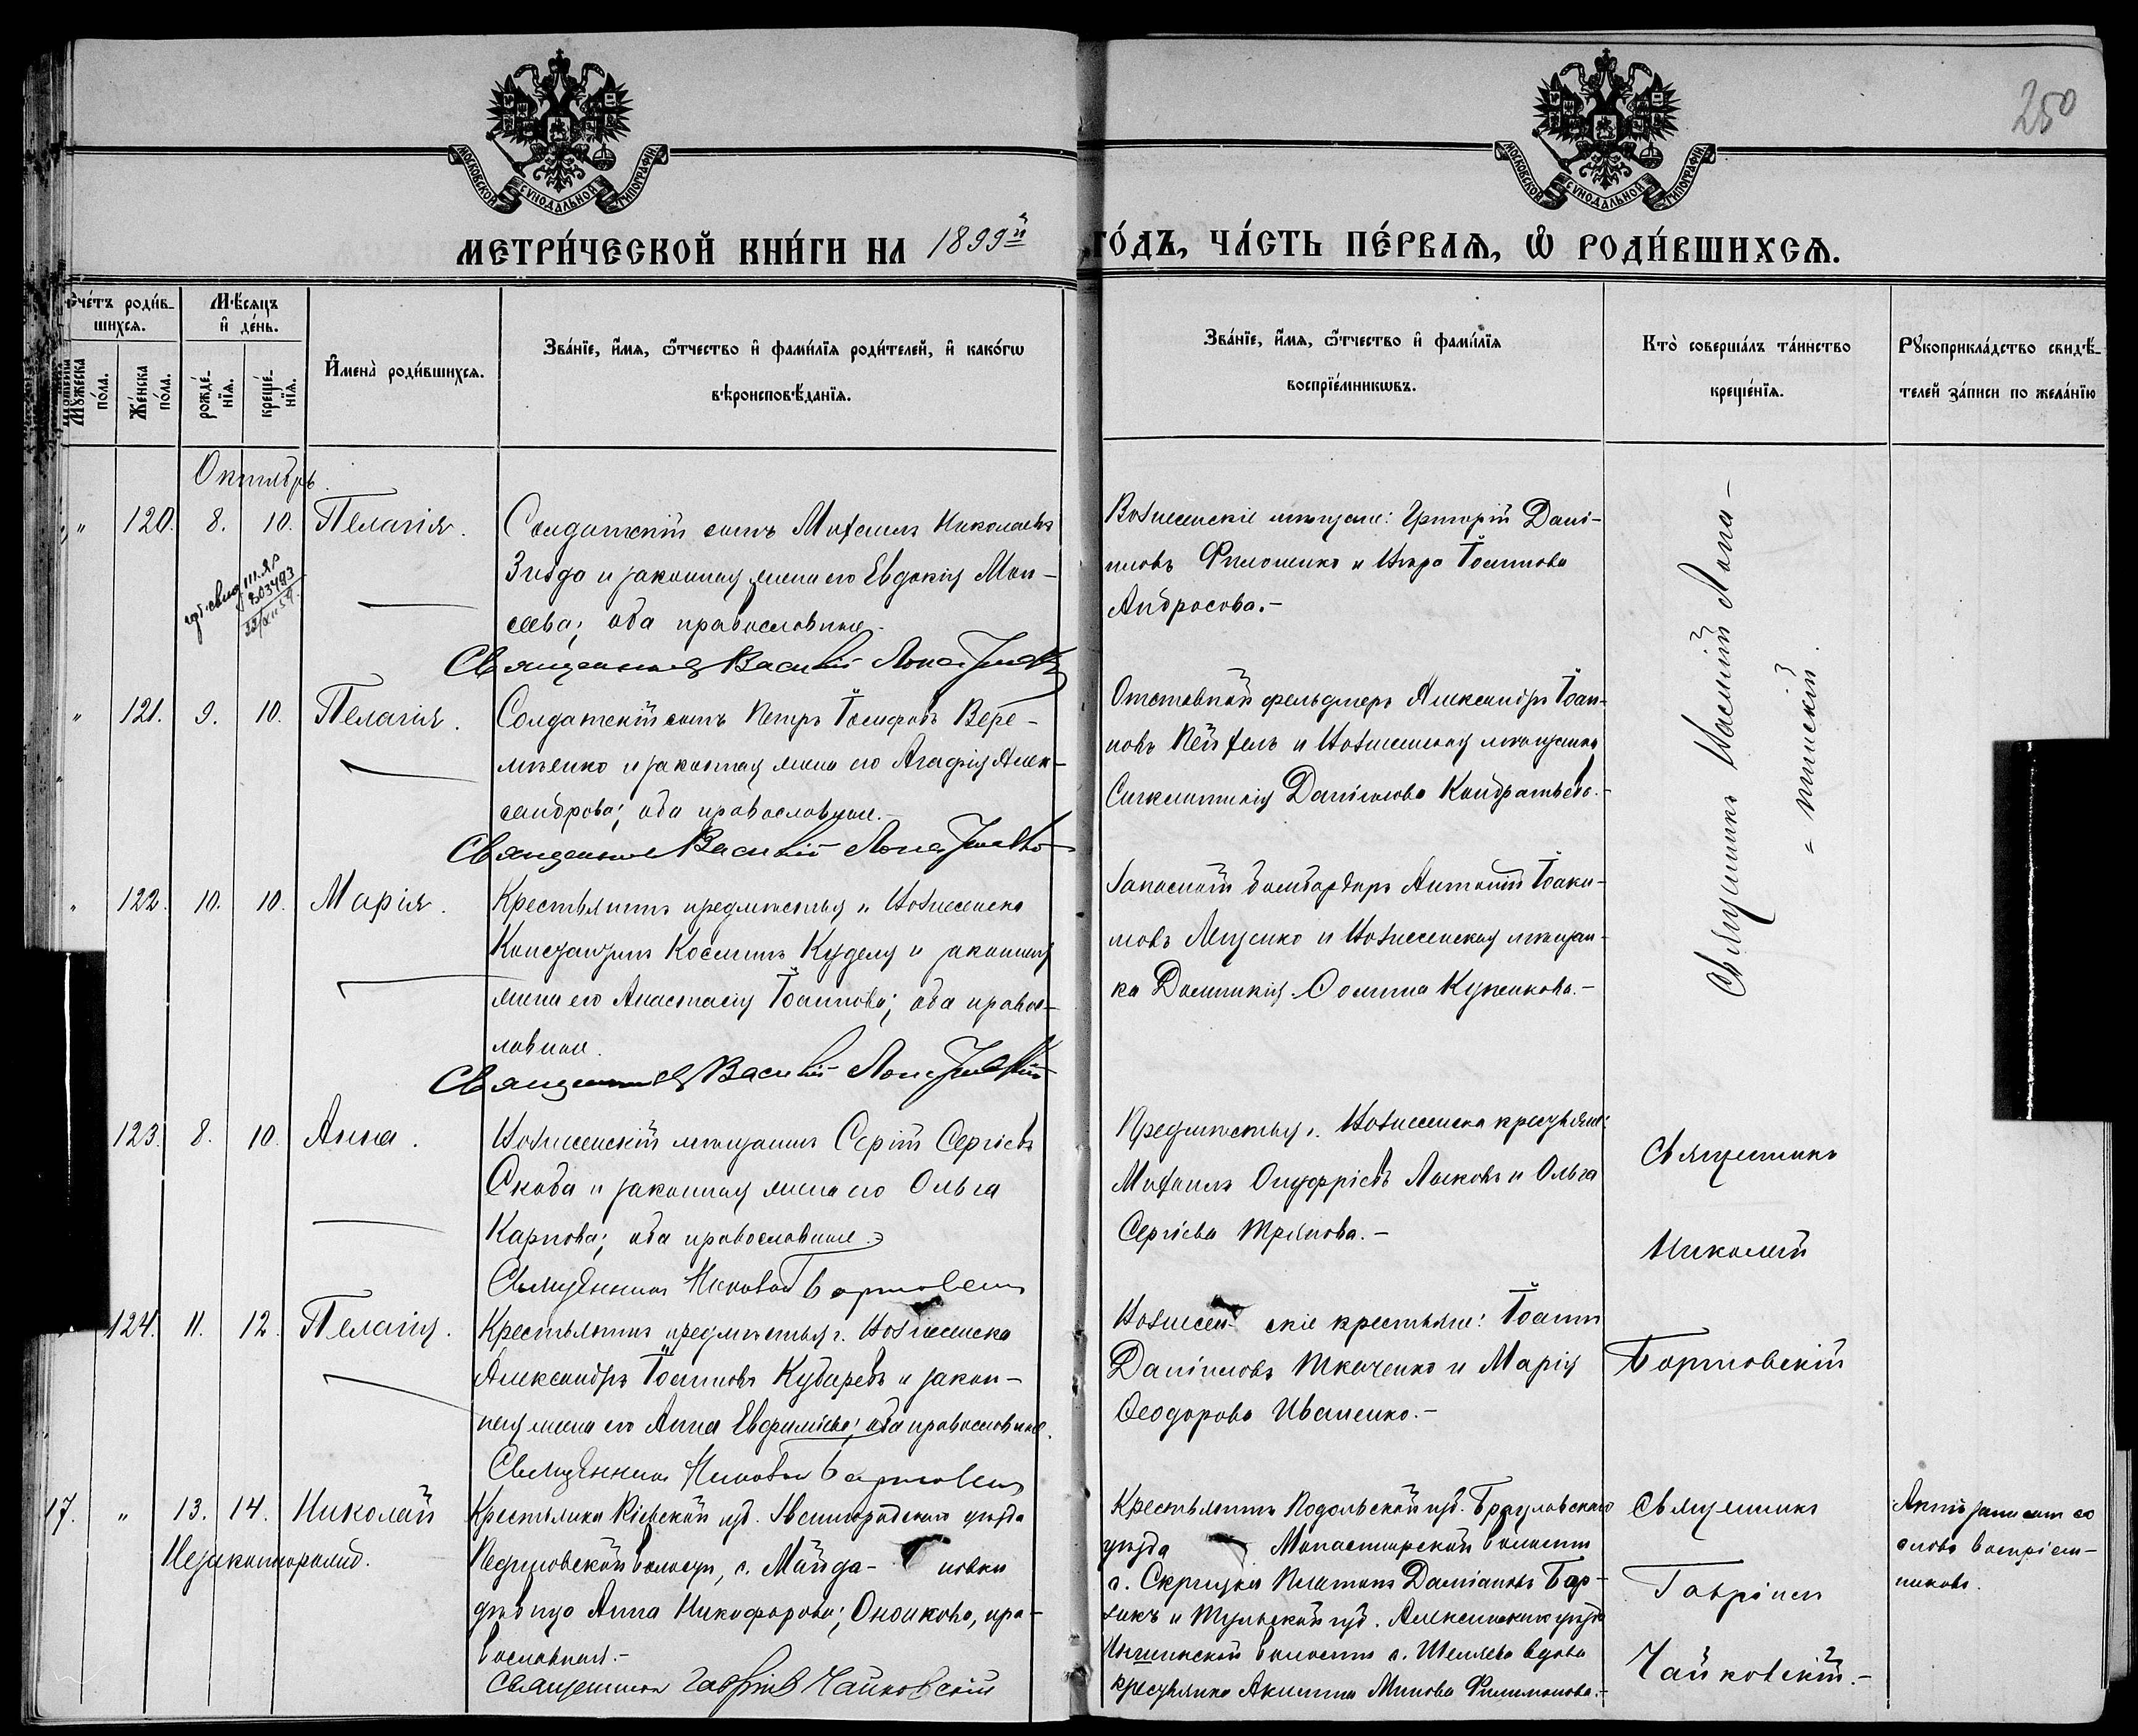 250
МОСКОВСКОЙ СѴНОДАЛЬНОЙ ТИПОГРАФІИ
МОСКОВСКОЙ СѴНОДАЛЬНОЙ ТИПОГРАФІИ
МЕТРИ́ЧЕСКОЙ КНИ́ГИ НА 1899й ГО́ДЪ, ЧА́СТЬ ПЕ́РВАѦ, Ѽ РОДИ́ВШИХСѦ.
Счетъ роди́в-
шихсѧ.
Мужеска
по́ла.
Же́нска
по́ла.
Мѣ́сѧцъ
и҆ де́нь.
рожде́-
нїѧ.
креще́-
нїѧ.
И҆мена̀ роди́вшихсѧ.
Зва́нїе, и҆́мѧ, ѻ҆́тчество и҆ фами́лїѧ роди́телей, и҆ како́гѡ
вѣроисповѣ́данїѧ.
Зва́нїе, и҆́мѧ, ѻ҆́тчество и҆ фами́лїѧ
воспрїе́мникѡвъ.
Кто̀ соверша́лъ та́инство
креще́нїѧ.
Рꙋкоприкла́дство свидѣ́-
телей за́писи по жела́нїю
Октябрь.
" 120. 8. 10. Пелагія.
Солдатскій сынъ Михаилъ Николаевъ
и законная жена его Евдокія Мои-
сеева; оба православные.
Священникъ Василій
Вознесенскіе мѣщане: Григорій Дані-
иловъ Филоненко и Вѣра Іоаннова
Андросова.-
Священникъ Василій Лопа-
" 121. 9. 10. Пелагія.
Солдатскій сынъ Петръ Іосифовъ Вере-
мѣенко и законная жена его Агафія Алек-
сандрова; оба православные.
Священникъ Василій
Отставной фельдшеръ Александръ Іоан-
новъ и Вознесенская мѣщанка
Синклитикія Даніилова Кондратьева.-
" 122. 10. 10. Марія.
Крестьянинъ предмѣстья г. Вознесенска
Константинъ Косминъ Куделя и законная
жена его Анастасія Іоаннова; оба правос-
лавные.
Священникъ Василій
Запасной бомбардиръ Антоній Іоаки-
мовъ и Вознесенская мѣщан-
ка Домникія Фомина
123. 8. 10. Анна.
Вознесенскій мѣщанинъ Сергій Сергіевъ
Скоба и законная жена его Ольга
Карпова; оба православные.
Священникъ Николай Бортовскій
Предмѣстья г. Вознесенска крестьяне:
Михаилъ Онуфріевъ Лысковъ и Ольга
Сергіева
Священникъ
Николай
Бортовскій
124. 11. 12. Пелагія.
Крестьянинъ предмѣстья г. Вознесенска
Александръ Іоанновъ Кубаревъ и закон-
ная жена его Анна Евфиміева; оба православные.
Священникъ Николай Бортовскій
Вознесенскіе крестьяне: Іоаннъ
Даніиловъ Ткаченко и Марія
Ѳеодорова Иваненко.-
17. " 13. 14. Николай
Незаконнорожд.
Крестьянка Кіевской губ. Звенигородскаго уѣзда
волости, с. Майда- новки
дѣвица Анна Никифорова; православная.-
Священникъ Гавріилъ Чайковскій
Крестьянинъ Подольской губ. Брацлавскаго
уѣзда Монастырской волости
с. Скрицка Платонъ Даміановъ
и Тульской губ. Алексинскаго уѣзда
волости с. вдова
крестьянка Акилина Минова Филимонова.-
Священникъ
Гавріилъ
Чайковскій.-
Актъ записанъ со
словъ воспріем-
никовъ.